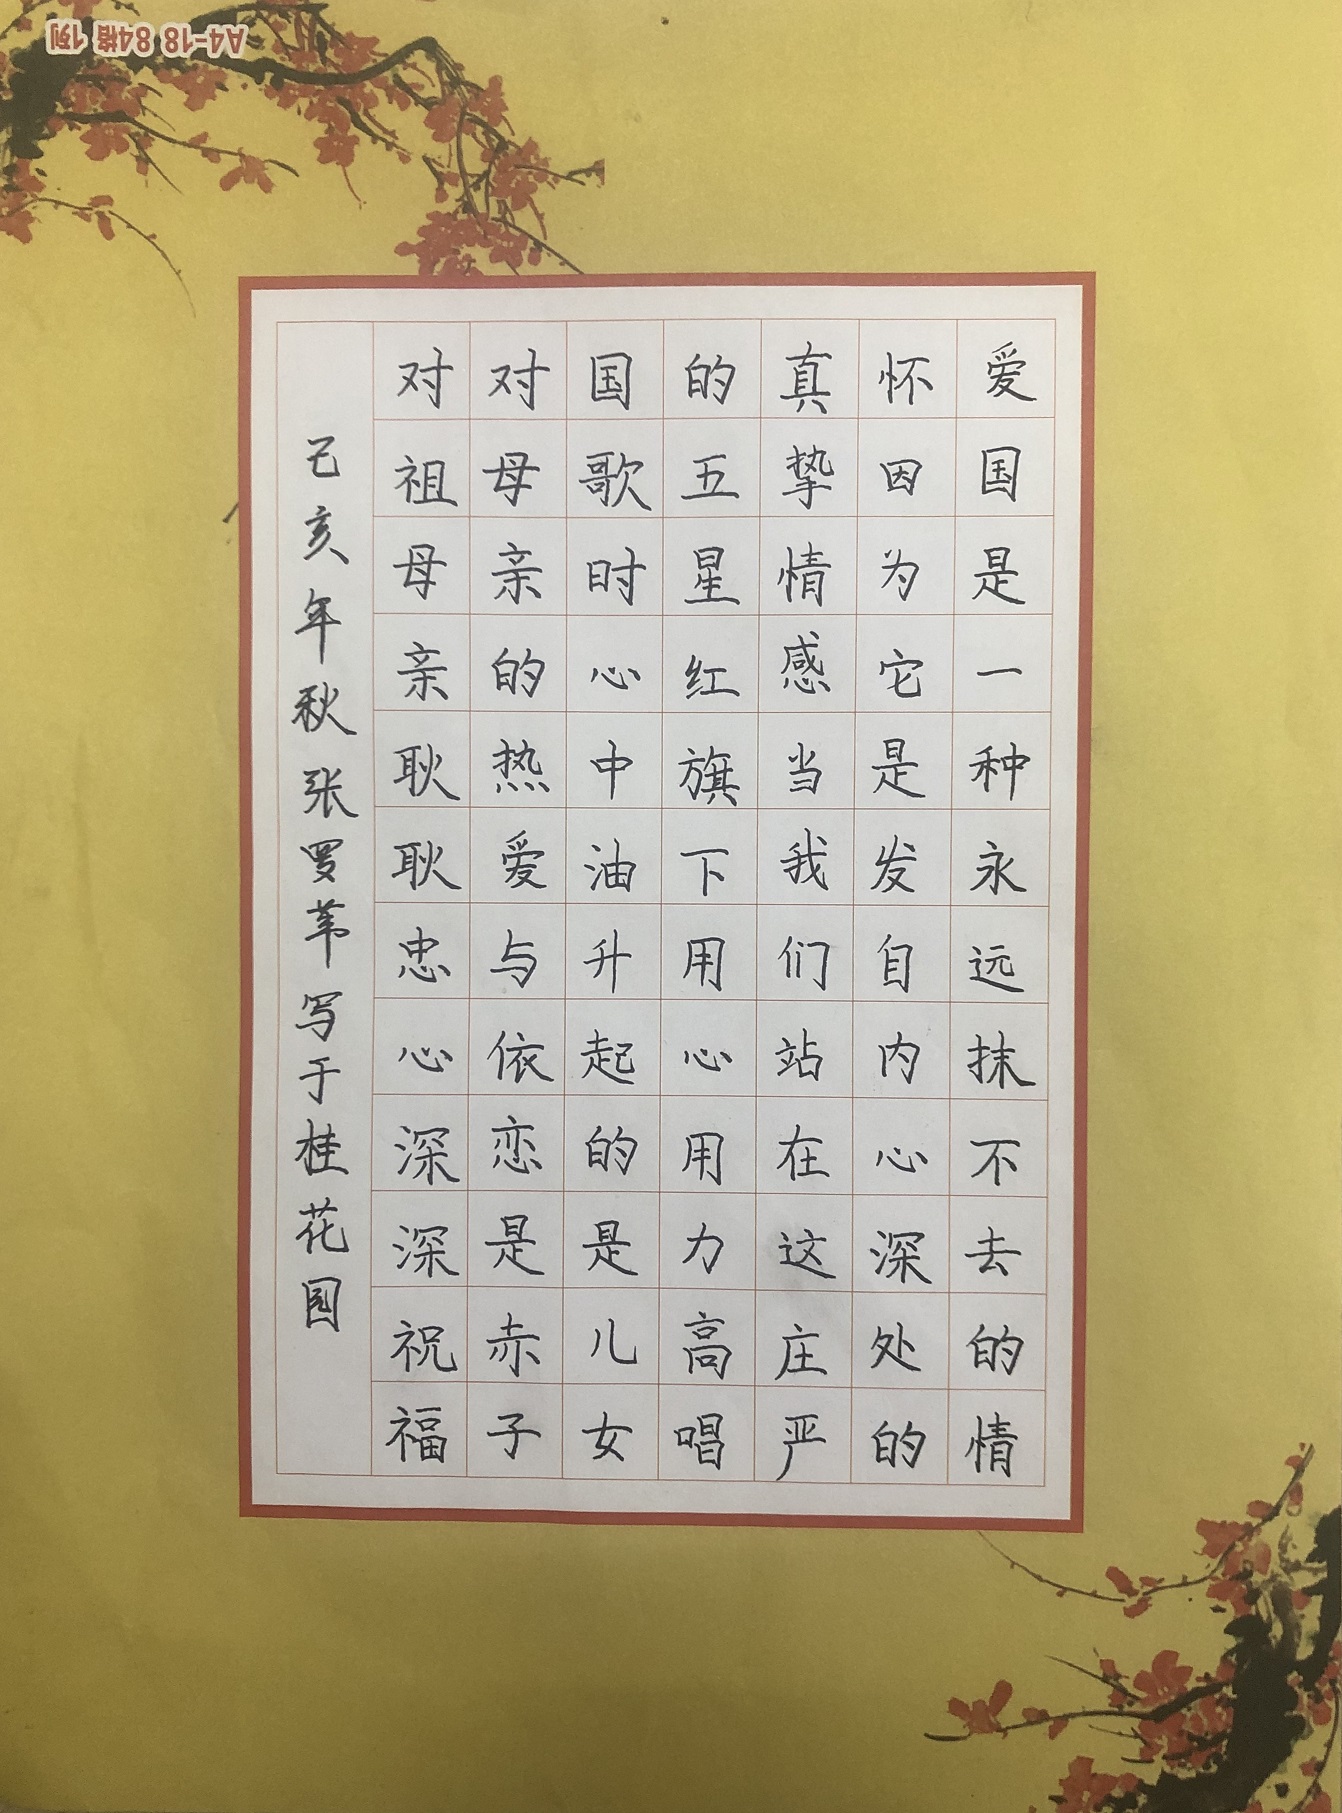 爱国是一种永远抹不去的情
怀因为它是发自内心深处的
真挚情感当我们站在这庄严
的五星红旗下用心用力高唱
国歌时心中油升起的是儿女
对母亲的热爱与依恋是赤子
对祖母亲耿耿忠心深深祝福
己亥年秋张罗苇写于桂花园
A4-18 84格 1列